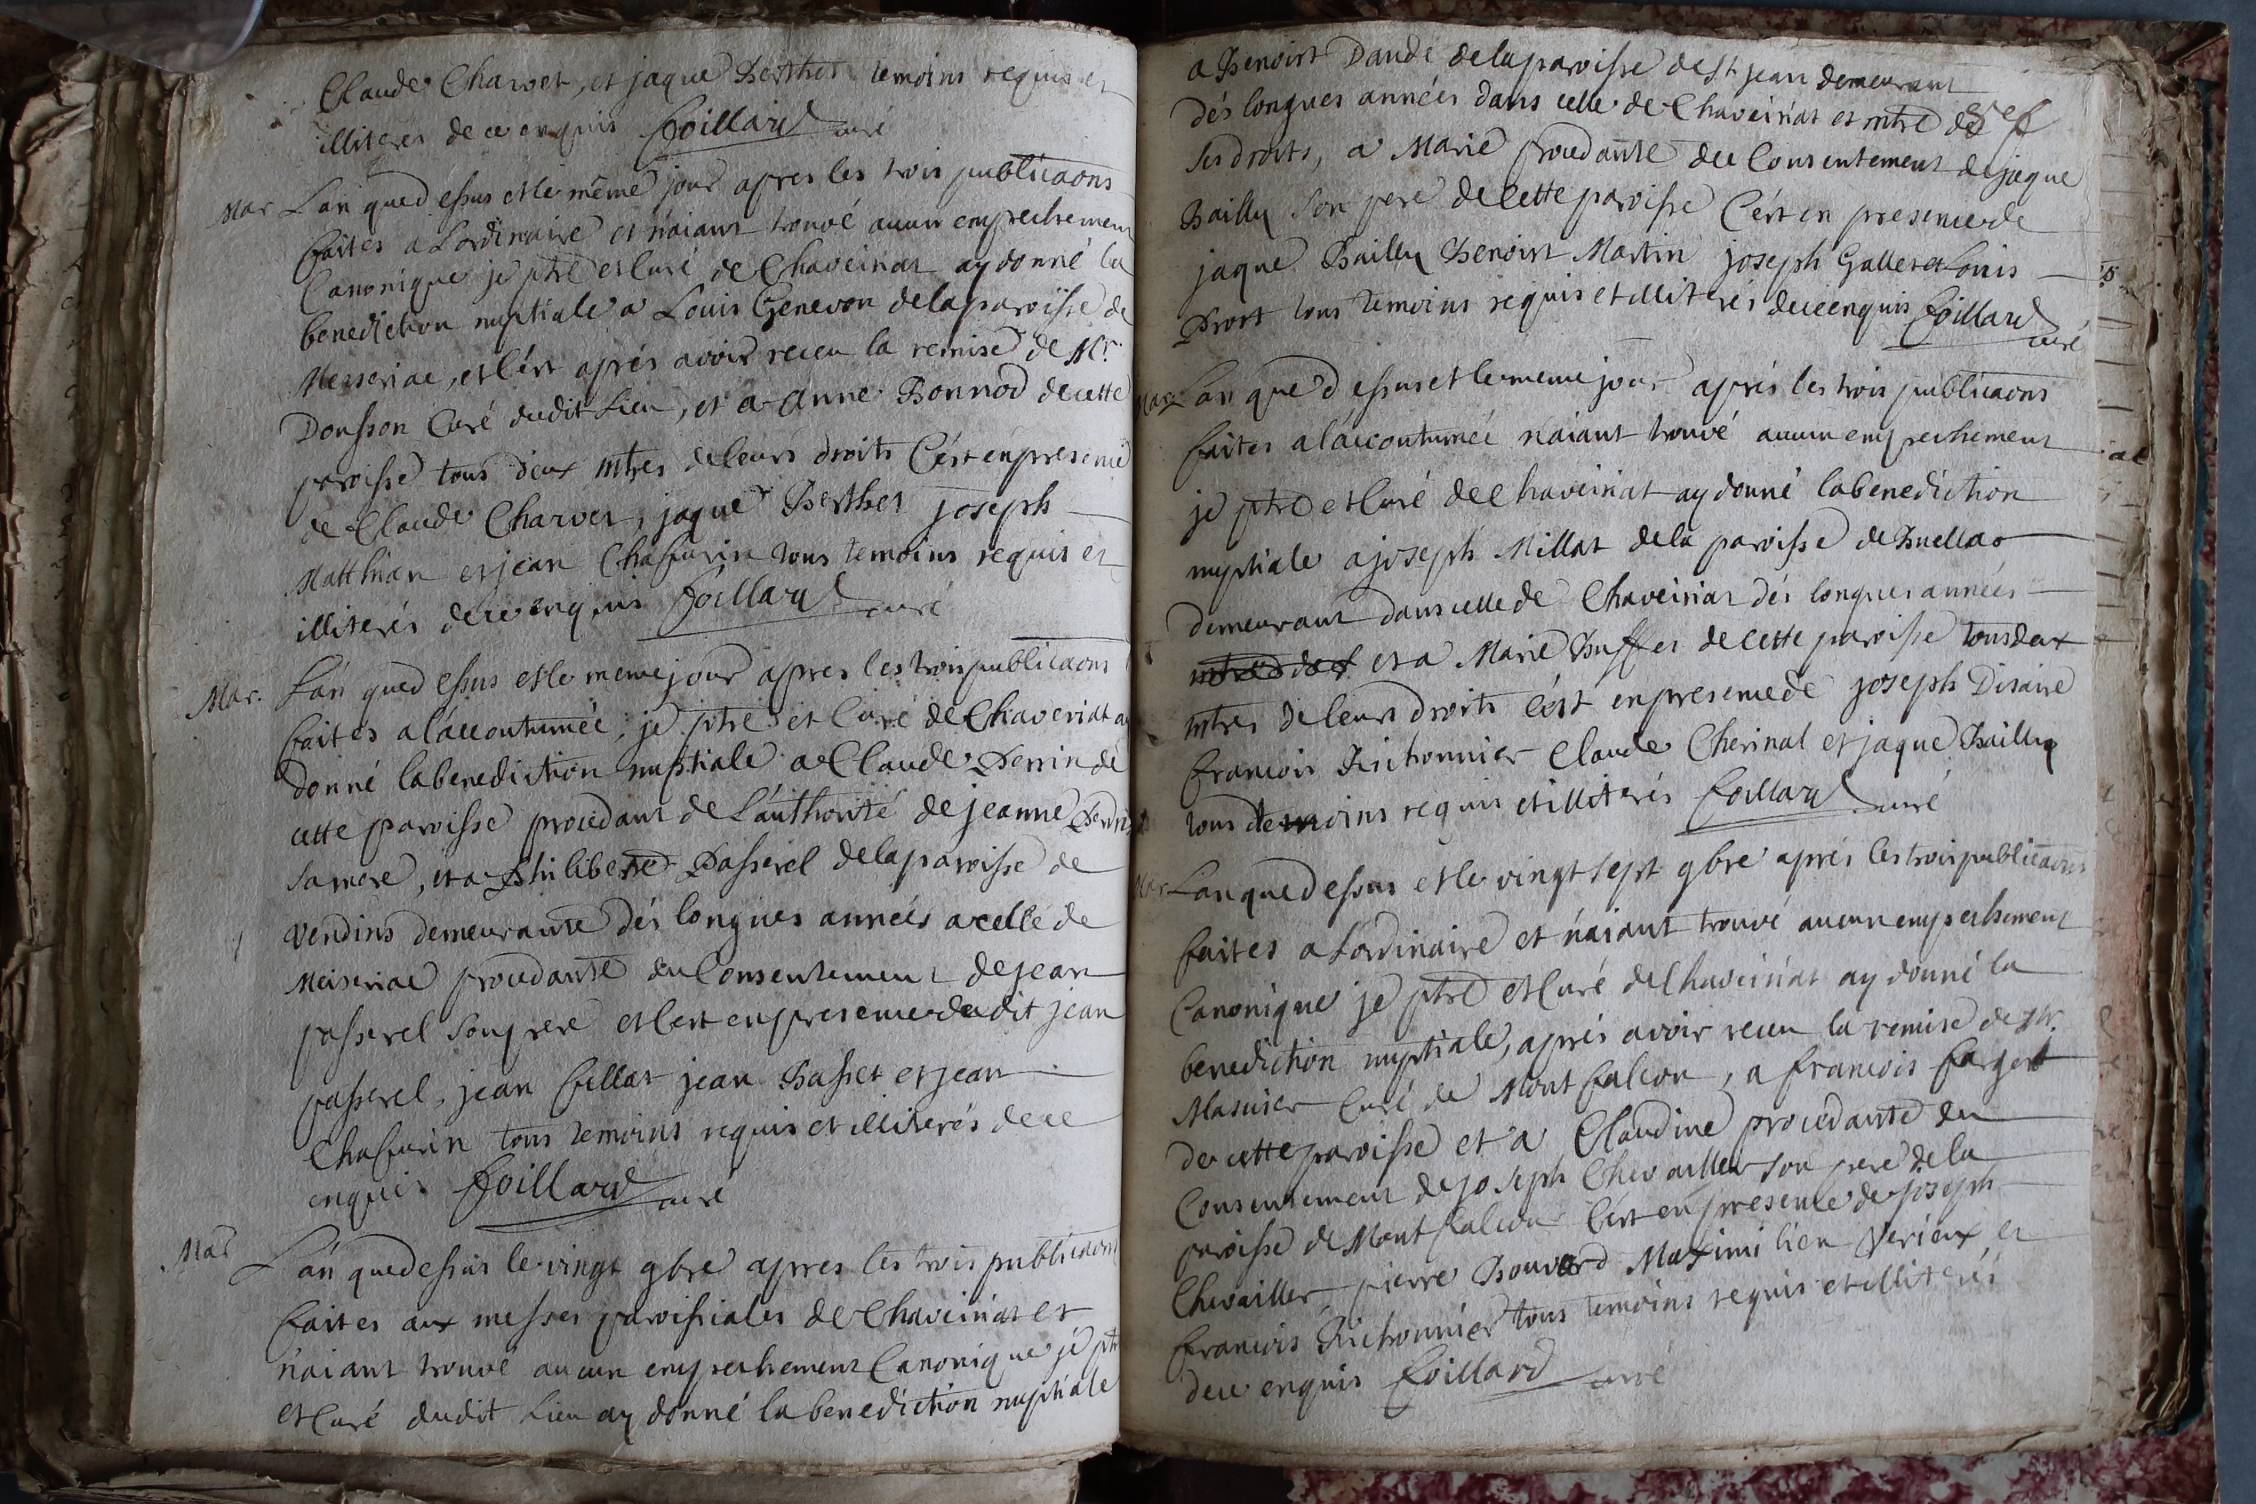 Claude Charvet, et jaque Berthet temoins requis et
illiterés de ce enquis ffoillard curé
Mar L'an que d'essus et le même jour apres les trois publicaons
faites a Lordinaire et n'aiant trouvé aucun empechement
Canonique je ptre et Curé de Chaveiriat ay donné la
benediction nuptiale a Louis Genevon de la paroisse de
Mezeriac, et c'est aprés avoir receu la remise de Mr.
Dousson Curé dudit Lieu, et a Anne Bonnod de cette
paroisse tous deux mtres de leurs droits C'est en presence
de Claude Charvet, jaque Berthet joseph
Matthian et jean Chafurin tous temoins requis et
illiterés de ce enquis ffoillard curé
Mar. L'an que d'essus et le meme jour apres les trois publicaons
faites a l'accoutumée, je ptre et Curé de Chaveriat ay
donné la benediction nuptiale a Claude Perrin de
cette paroisse procedant de L'authorité de jeanne
sa mere, et a Philiberte Passerel de la paroisse de
Vendins demeurante dés longues années a celle de
Meiseriac procedante du Consentement de jean
passerel son pere et c'est en presence dudit jean
passerel, jean fillat jean Basset et jean
Chafurin tous temoins requis et illiterés de ce
enquis ffoillard curé
Mar L'an que dessus le vingt 9bre apres les trois publicaons
faites aux messes paroissiales de Chaveiriat et
n'aiant trouvé aucun empechement Canonique je ptre
et Curé dudit Lieu ay donné la benediction nuptiale
a Benoist Dande de la paroisse de St jean demeurant
dés longues années dans celle de Chaveiriat et mtre de
ses droits, a Marie procedante du Consentement de jaque
Bailly son pere de cette paroisse C'est en presence de
jaque Bailly Benoist Martin joseph Gallet et Louis
Prost tous temoins requis et illiterés de ce enquis ffoillard
curé
Mar L'an que d'essus et le meme jour aprés les trois publicaons
faites a l'accoutumée n'aiant trouvé aucun empechement
je ptre et Curé de Chaveiriat ay donné la benediction
nuptiale a joseph Millat de la paroisse de Buellas
demeurant dans celle de Chaveiriat dés longues années
et a Marie Buffet de cette paroisse tous deux
mtres de leurs droits c'est en presence de joseph Disaire
francois Richonnier Claude Cherinal et jaque Bailly
tous temoins requis et illiterés ffoillard curé
Mar L'an que d'essus et le vingt sept 9bre aprés les trois publicaons
faites a Lordinaire et n'aiant trouvé aucun empechement
Canonique je ptre et Curé de Chaveiriat ay donné la
benediction nuptiale, aprés avoir receu la remise de Mr.
Masuier Curé de Montfalcon, a francois farget
de cette paroisse et a Claudine procedante du
Consentement de joseph Chevailler son pere de la
paroisse de Montfalcon C'est en presence de joseph
Chevailler pierre Bouvard Maximilien Verieux et
francois Richonnier tous temoins requis et illiterés
de ce enquis ffoillard curé